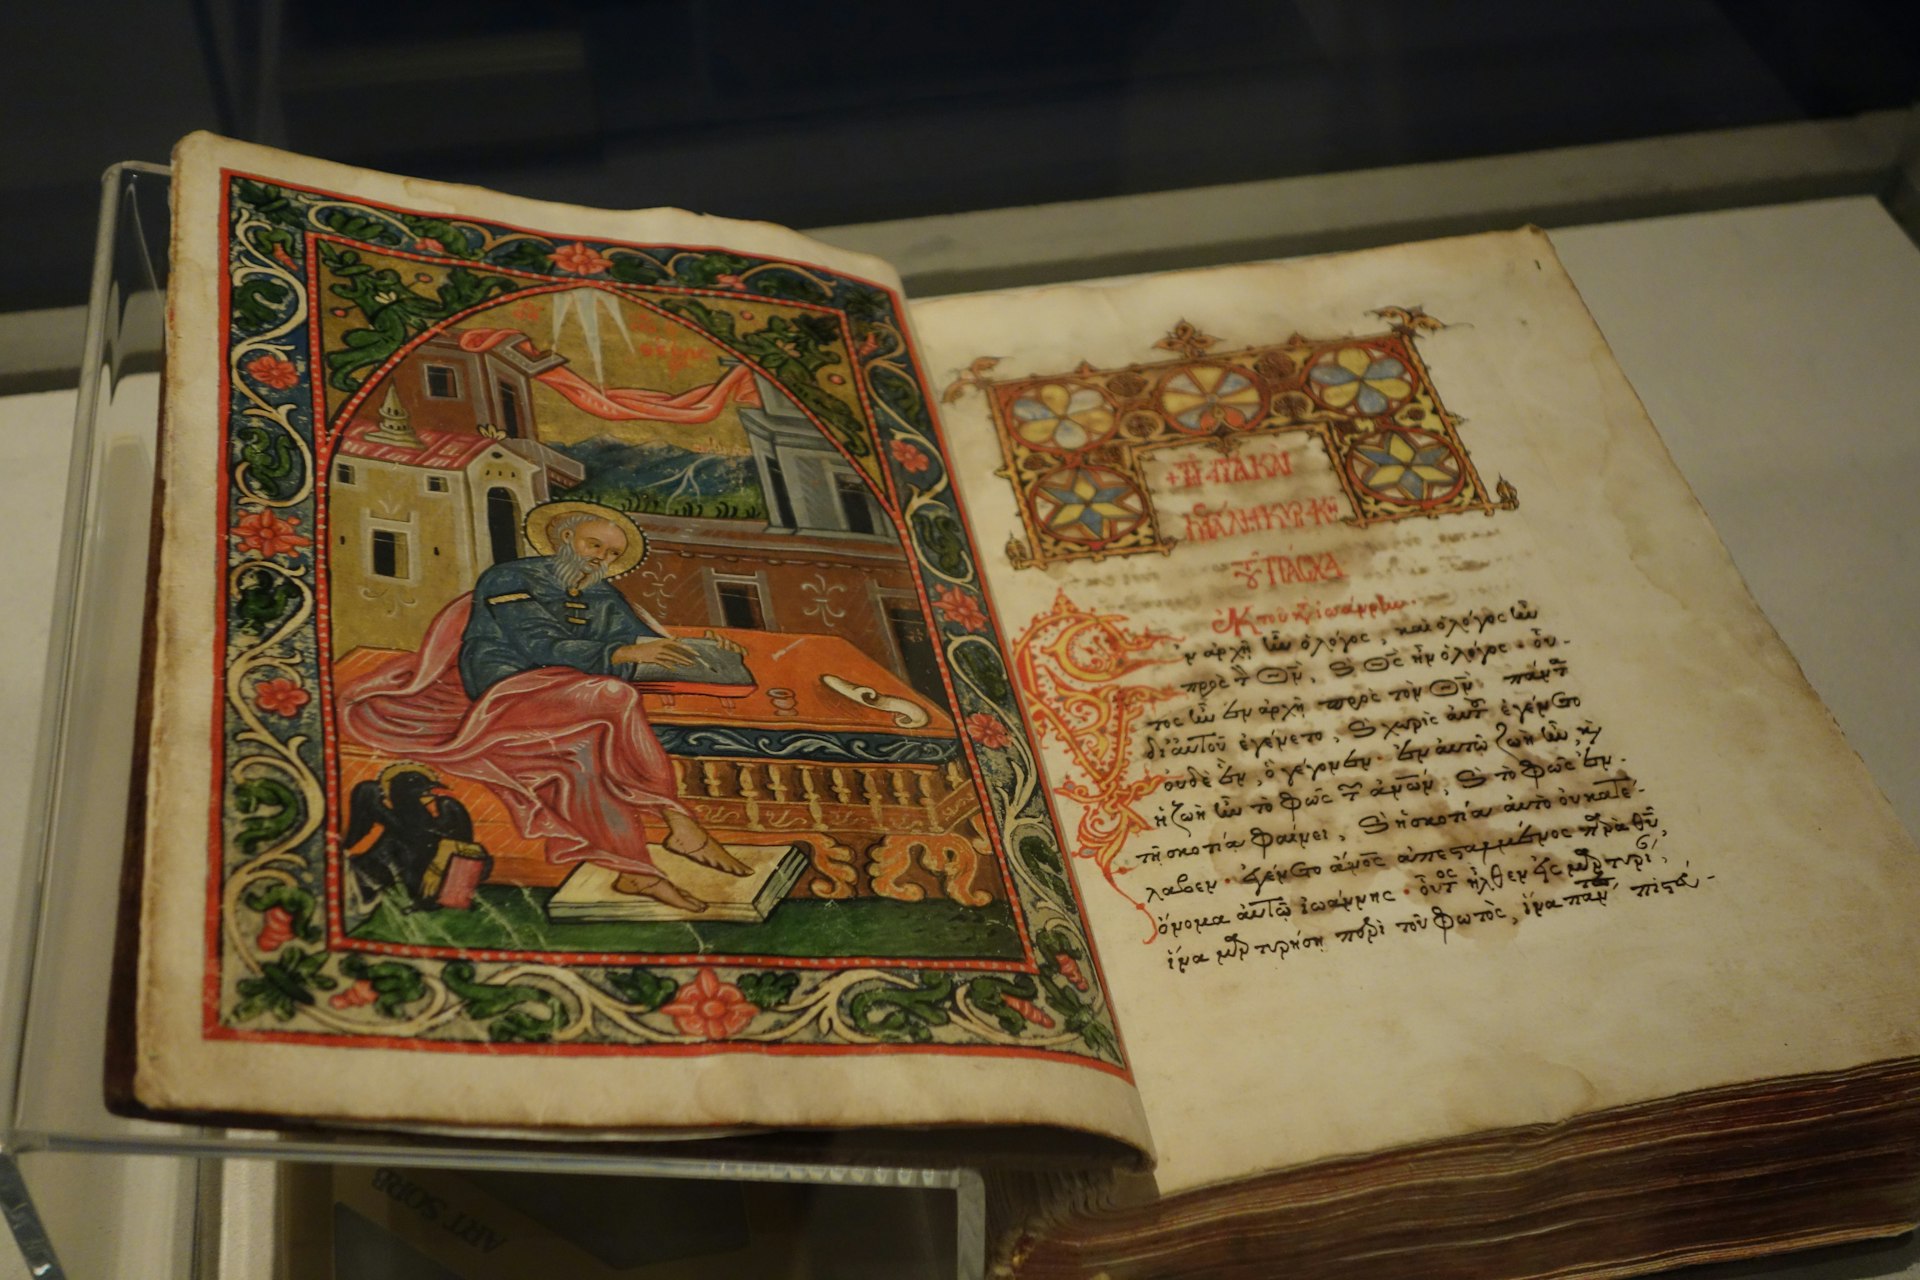 + Τῇ ἁγίᾳ καὶ
μεγάλῃ κυριακῇ
τοῦ πάσχα·
Ἐκ τοῦ κατὰ ἰωάννην·
Ἐν ἀρχῇ ἦν ὁ λόγος, καὶ ὁ λόγος ἦν
πρὸς τὸν Θν̅, καὶ Θς̅ ἦν ὁ λόγος· οὗ-
τος ἦν ἐν ἀρχῇ πρὸς τὸν Θν̅· πάντα
δι' αὐτοῦ ἐγένετο, καὶ χωρὶς αὐτοῦ ἐγένετο
οὐδὲ ἕν, ὃ γέγονεν· ἐν αὐτῷ ζωὴ ἦν, καὶ
ἡ ζωὴ ἦν τὸ φῶς τῶν ἀνω̅ν, καὶ τὸ φῶς ἐν
τῇ σκοτίᾳ φαίνει, καὶ ἡ σκοτία αὐτὸ οὐ κατέ-
λαβεν· ἐγένετο ἄνο̅ς ἀπεσταλμένος παρὰ Θυ̅,
ὄνομα αὐτῷ ἰωάννης· οὗτος ἦλθεν εἰς μαρτυρί,
ἵνα μαρτυρήσῃ περὶ τοῦ φωτὸς, ἵνα πάντες πιστεύ-
ART SORB